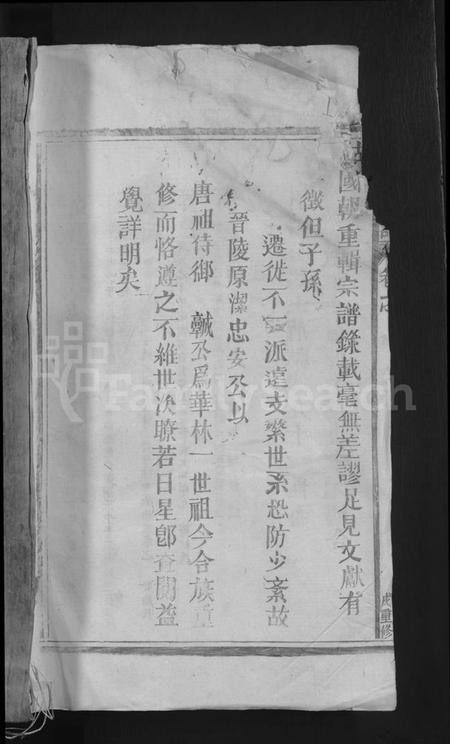 國朝重輯宗譜錄載毫無差謬足見文獻有
徵但子孫
遷徙不一派遠支繁世系恐防少紊故
晉陵原潔忠安公以
唐祖待御 公爲華林一世祖今合族重
修而恪遵之不維世次暸若日星卽查閱益
覺詳明矣
重修
FamilySearch